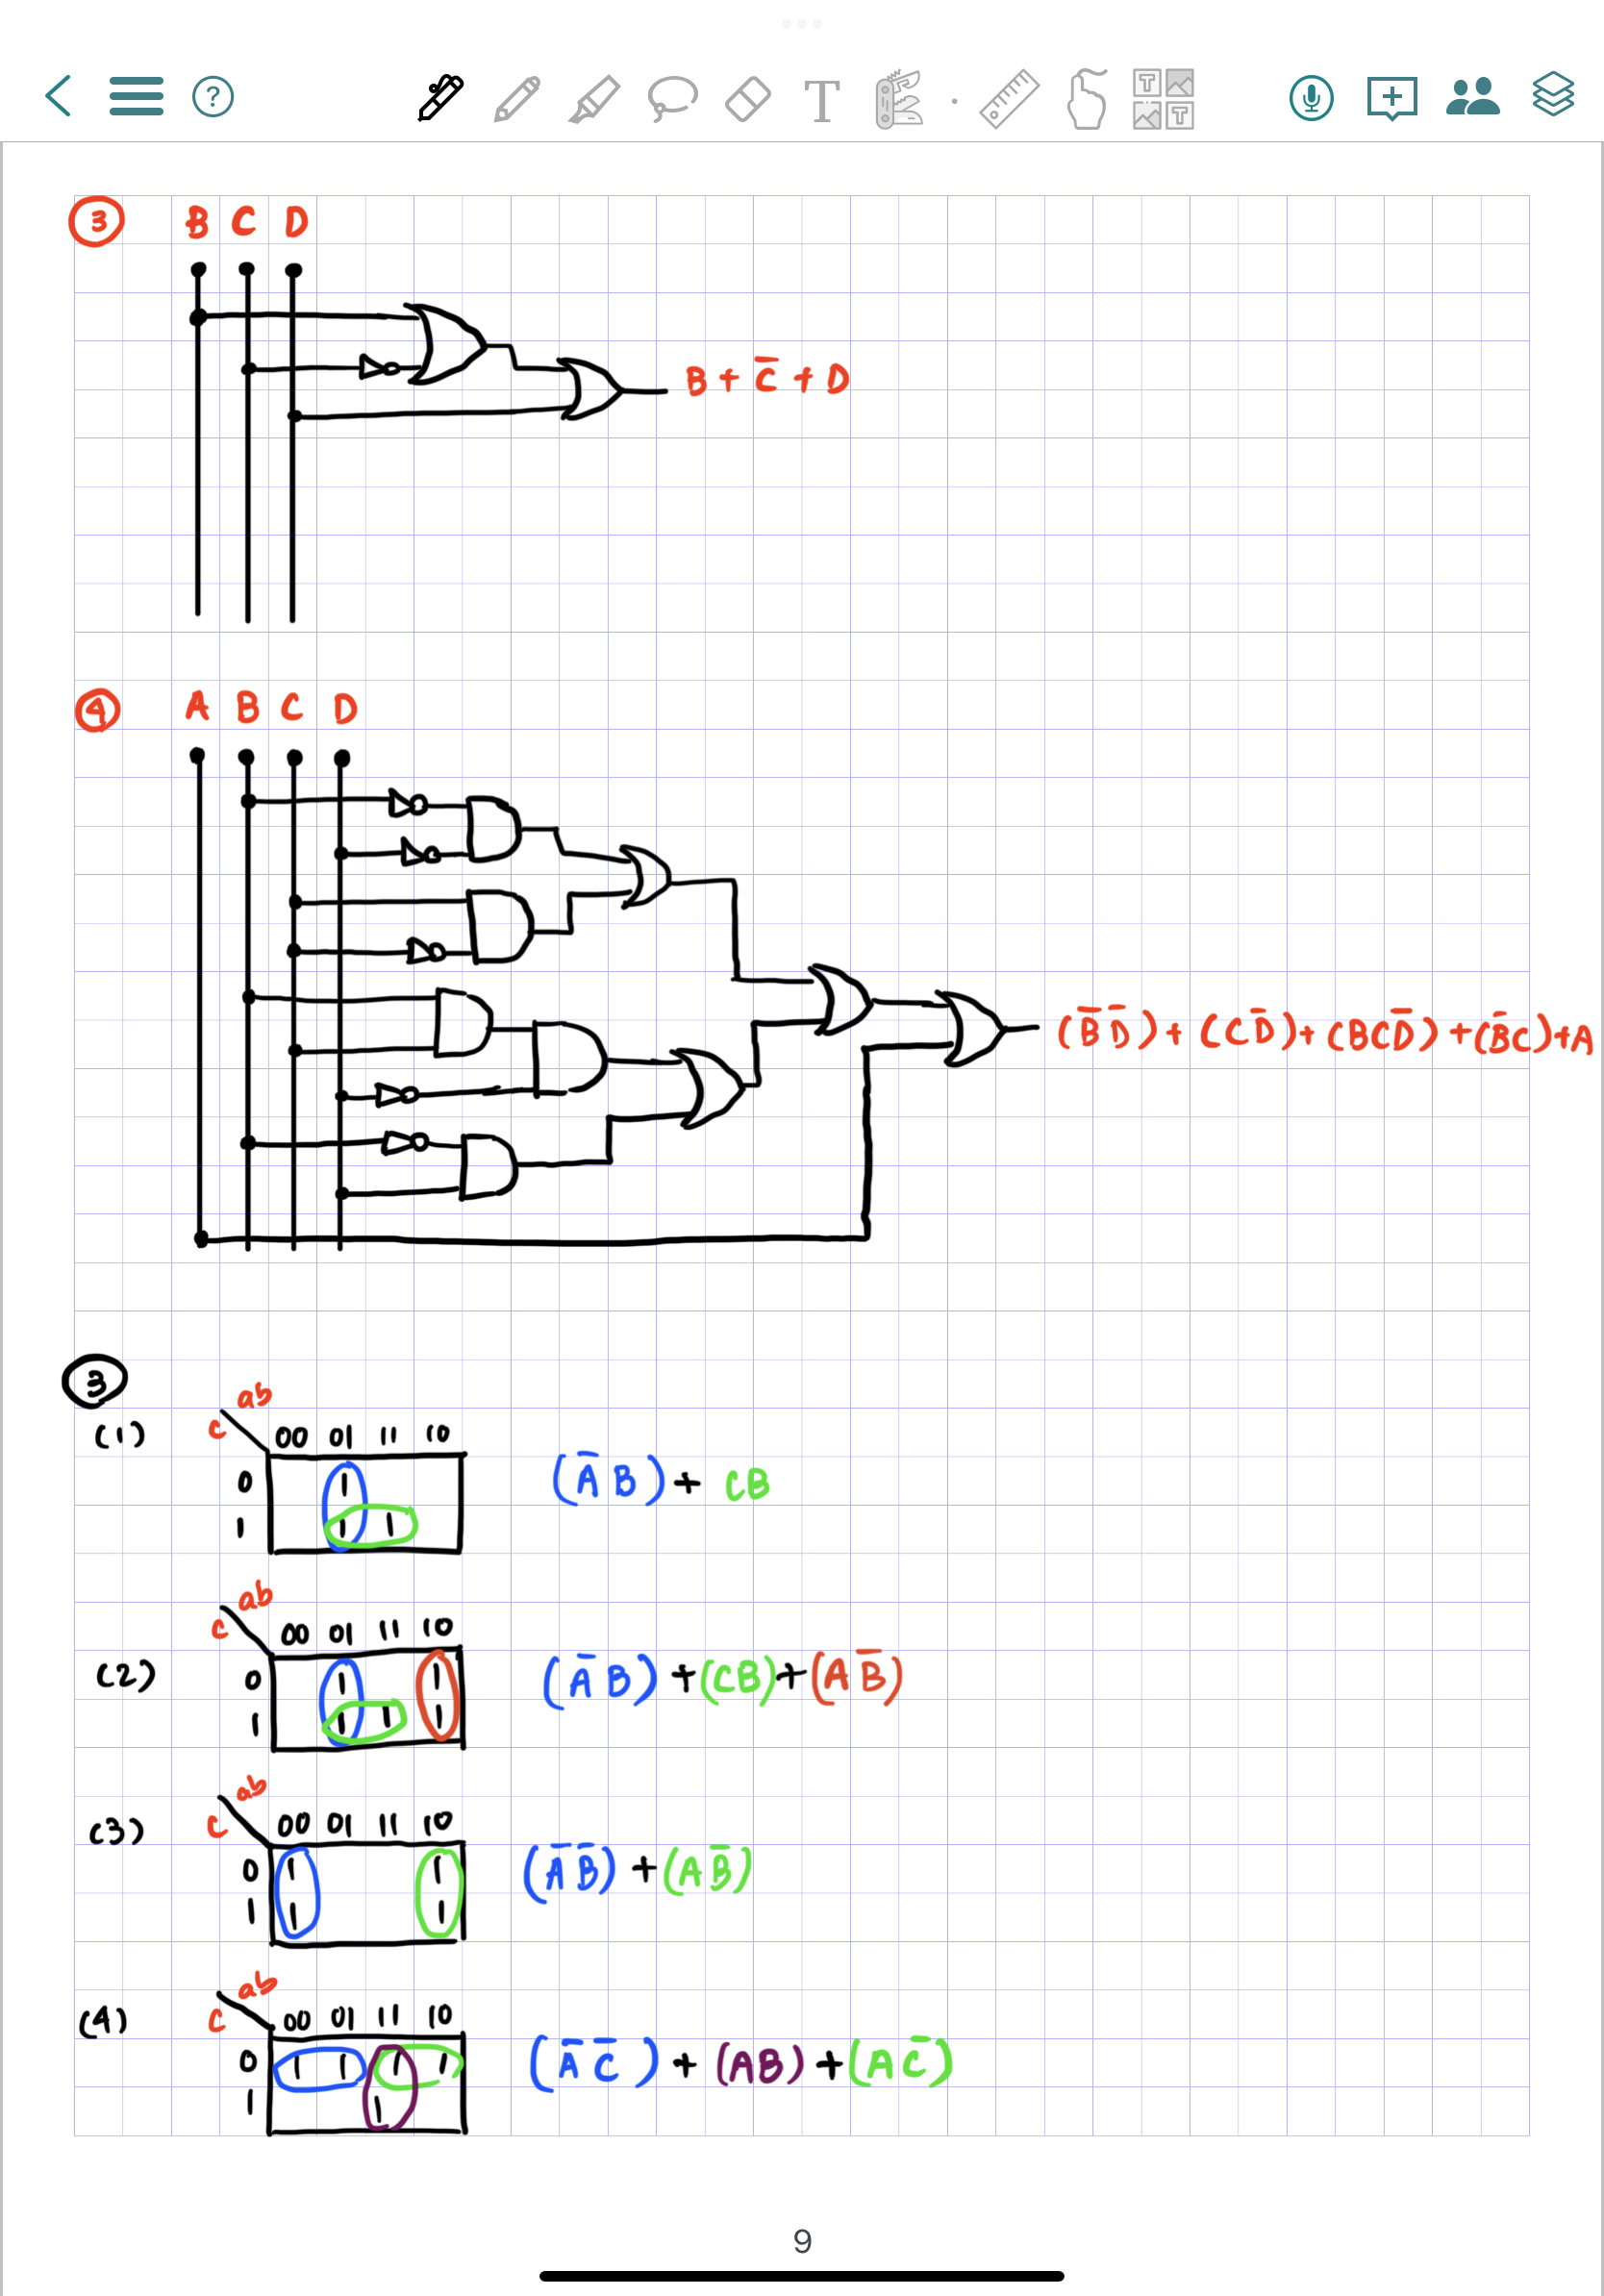 ?
T
T
T
③ B C D
B + C̅ + D
④ A B C D
(B̅ D̅) + (C D̅) + (B C D̅) + (B̅ C) + A
③
(1) c ab
00 01 11 10
0 1
1 1 1
(A̅ B) + CB
(2) c ab
00 01 11 10
0 1 1
1 1 1 1
(A̅ B) + (CB) + (A B̅)
(3) c ab
00 01 11 10
0 1 1
1 1 1
(A̅ B̅) + (A B̅)
(4) c ab
00 01 11 10
0 1 1 1 1
1 1
(A̅ C̅) + (AB) + (A C̅)
9